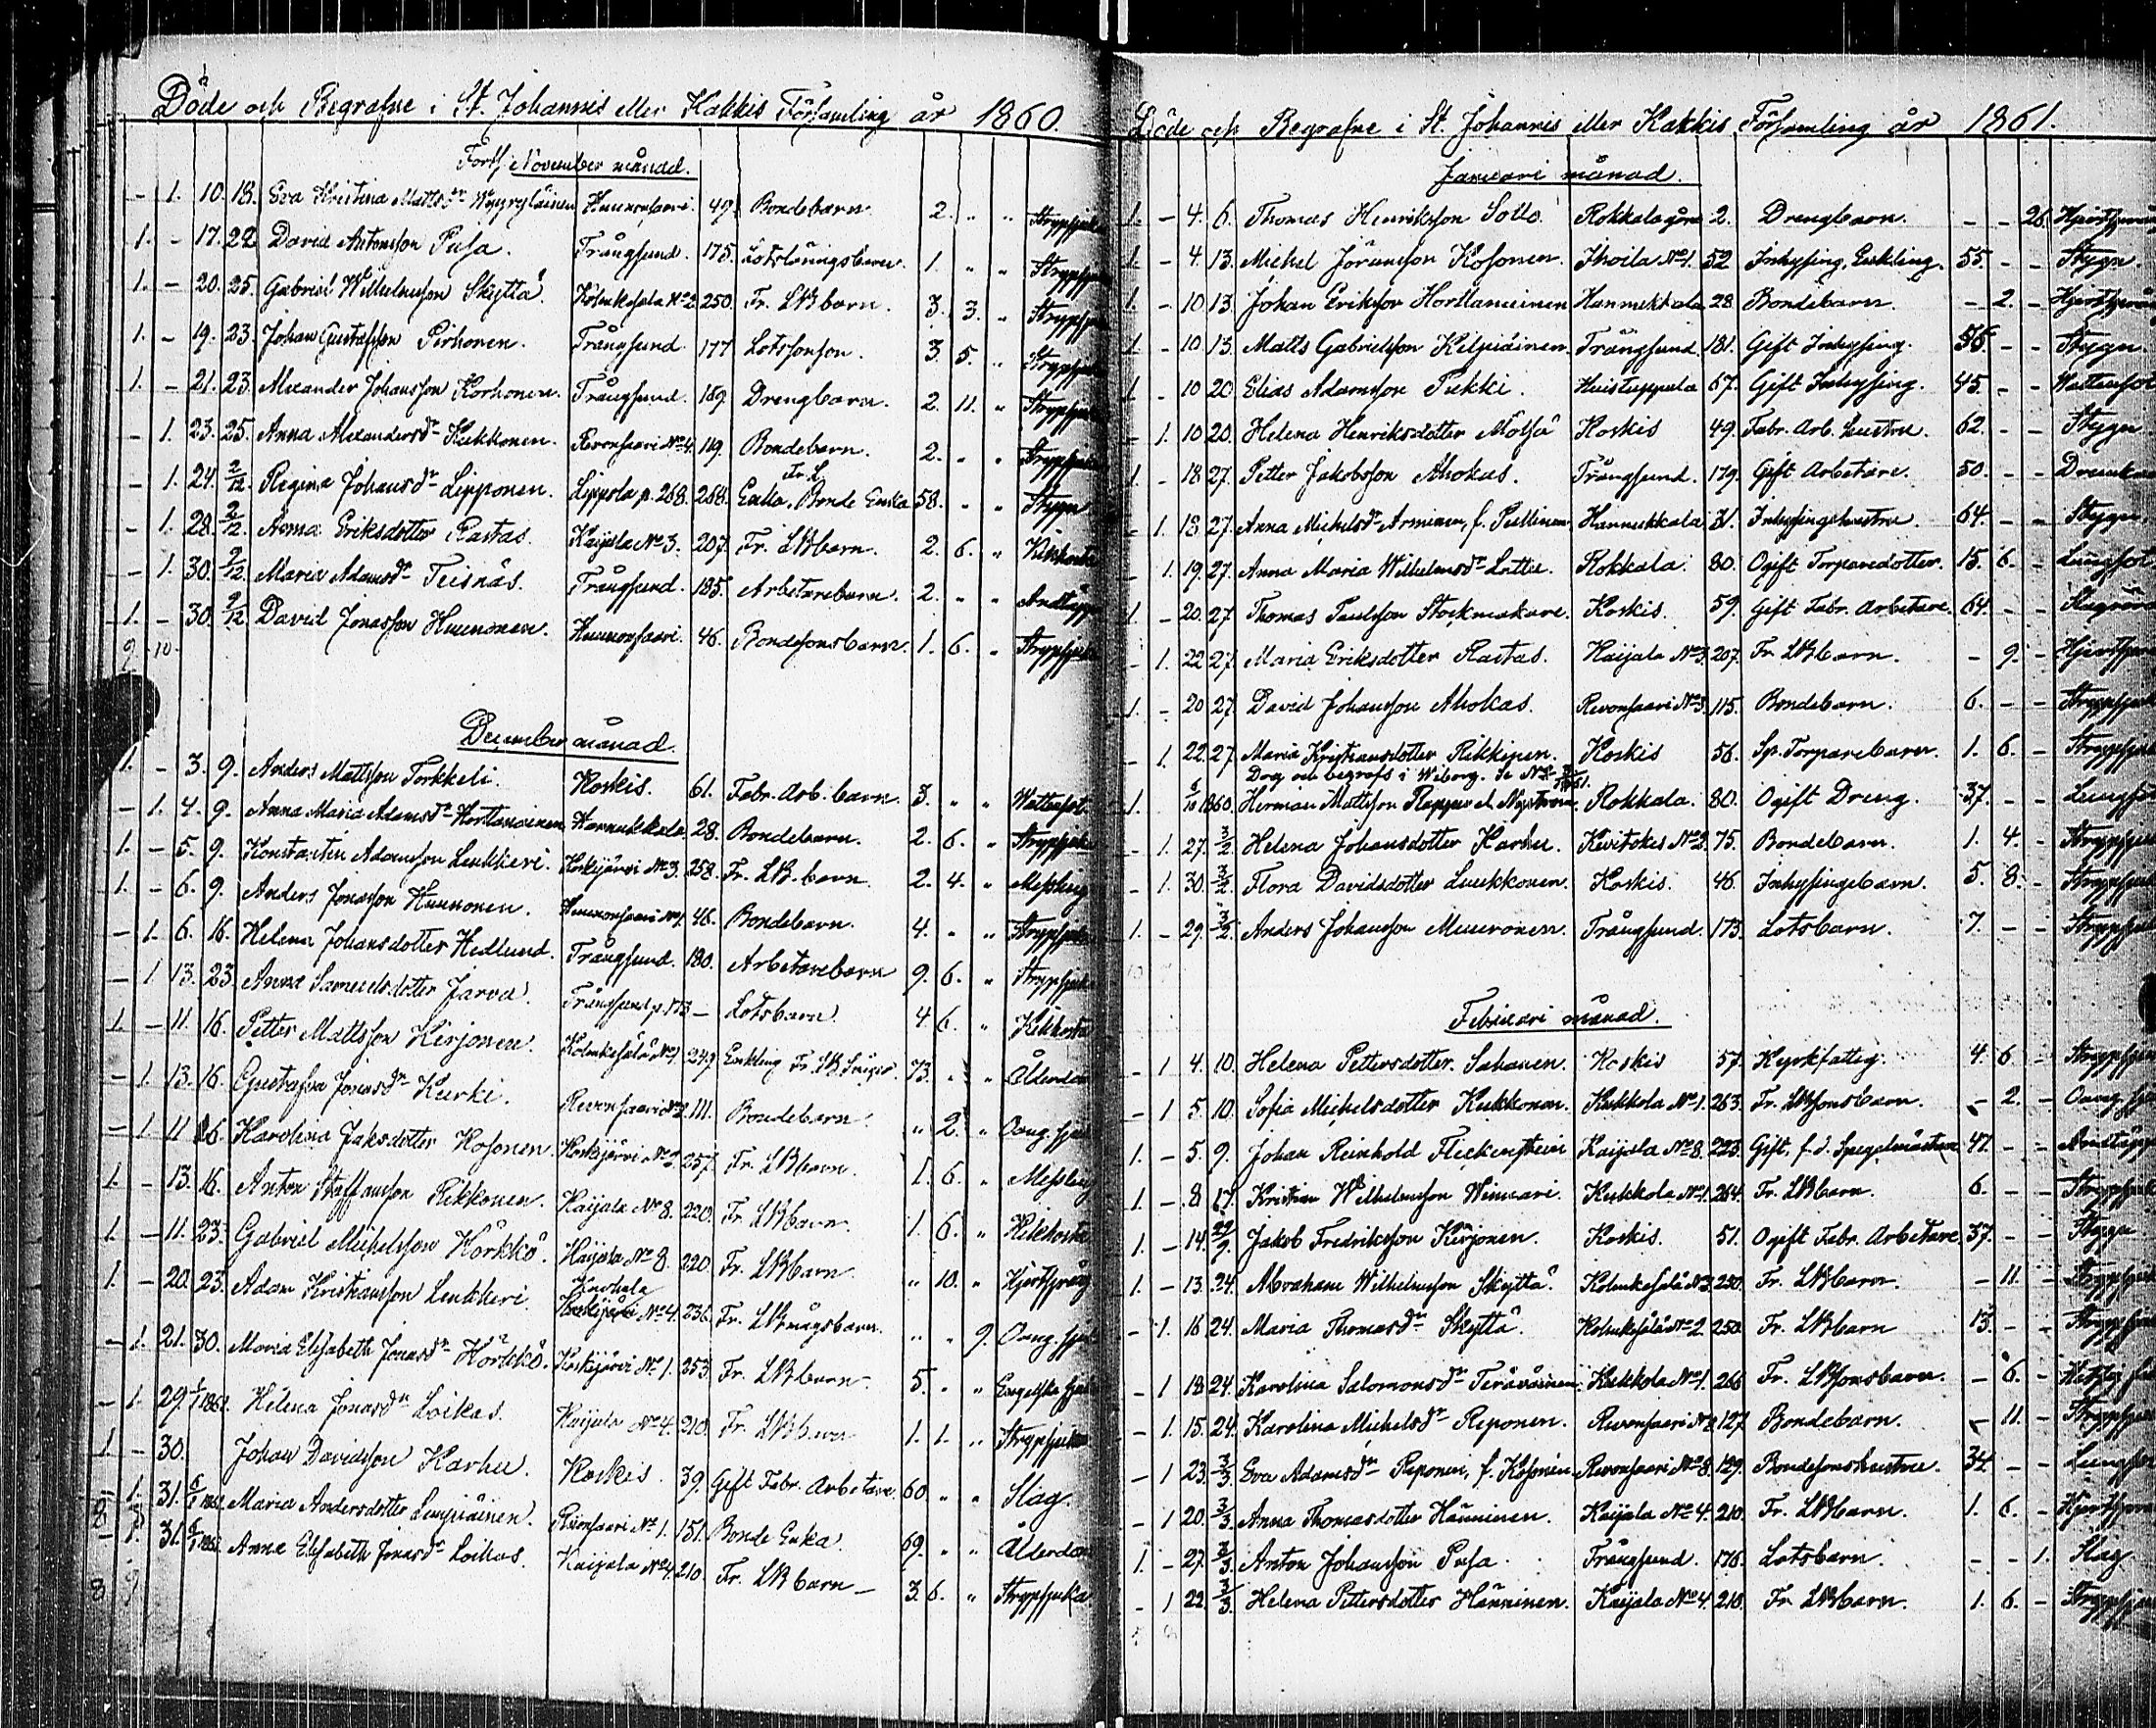 Döde och Begrafne i St. Johannis eller Kakkis Församling år 1860.
Forts. November månad.
- 1. 10. 18. Eva Kristina Mattsdr Kuunonsaari. 49. Bondebarn. 2. " " Strypsjuka
1. - 17. 22. David Antonsson Pusa. Trångsund. 175. Lotslärlingsbarn. 1. " " Strypsjuka
1. - 20. 25. Gabriel Wilhelmsson Skyttä. Kolmikesälä No 2. 250. Fr. LB barn. 3. 3. " Strypsjuka
1. - 19. 23. Johan Gustafsson Pirhonen. Trångsund. 177. Lotssonson. 3. 5. " Strypsjuka
1. - 21. 23. Alexander Johansson Korhonen. Trångsund. 189. Drengbarn. 2. 11. " Strypsjuka
- 1. 23. 25. Anna Alexandersdr Kukkonen. Revonsaari No 4. 119. Bondebarn. 2. " " Strypsjuka
- 1. 24. 2/12. Regina Johansdr Lipponen. Lippola p. 268. 268. Enka, Bonde Enka 58. " " Stygn
- 1. 28. 2/12. Anna Eriksdotter Rastas. Kaijala No 3. 207. Fr. LB barn. 2. 6. " Kikhosta
- 1. 30. 2/12. Maria Adamsdr Teisnäs. Trångsund. 185. Arbetarebarn. 2. " " Andtäppa
1. - 30. 9/12. David Jonasson Huunonen. Kuunonsaari. 46. Bondesonsbarn. 1. 6. " Strypsjuka
9. 10.
December månad.
1. - 3. 9. Anders Mattsson Torkkeli. Koskis. 61. Fabr. Arb. barn. 3. " " Wattusot
- 1. 4. 9. Anna Maria Adamsdr Horttanainen Hannukkala. 28. Bondebarn. 2. 6. " Strypsjuka
1. - 5. 9. Konstantin Adamsson Leukkeri. Koskijärvi No 3. 258. Fr. LB. barn. 2. 4. " Messling
1. - 6. 9. Anders Jonasson Huunonen. Kuunonsaari No 1. 46. Bondebarn. 4. " " Strypsjuka
- 1. 6. 16. Helena Johansdotter Hedlund. Trångsund. 180. Arbetarebarn 9. 6. " Strypsjuka
- 1. 13. 23. Anna Samuelsdotter Jarva. Trångsund p. 173 - Lotsbarn. 4. 6. " Kikhosta
1. - 11. 16. Petter Mattsson Kirjonen. Kolmikesälä No 1. 247. Enkling Fr. LB. 73. " " Ålderdom
- 1. 13. 16. Gustafva Jonasdr Kurki. Revonsaari No 2. 111. Bondebarn. " 2. " Oang. sjuk
- 1. 11. 16. Karolina Jaksdotter Kosonen. Koskijärvi No 2. 257. Fr. LB barn. 1. 6. " Messling
1. - 13. 16. Anton Staffansson Pikkonen. Kaijala No 8. 220. Fr. LB barn. 1. 6. " Kikhosta
1. - 11. 23. Gabriel Michelsson Hörkkö. Kaijala No 8. 220. Fr. LB barn " 10. " Hjertsprång
1. - 20. 23. Adam Kristiansson Leukkeri. No 4. 236. Fr. LB mågsbarn. " " 9. Oang. sjuk
- 1. 21. 30. Maria Elisabeth Jonasdr Hörkkö. Koskijärvi No 1. 253. Fr. LB barn. 5. " " Engelska sjuka
- 1. 29. 1/1 1861. Helena Jonasdr Loikas. Kaijala No 4. 210. Fr. LB barn 1. 1. " Strypsjuka
1. - 30. Johan Davidsson Karhu. Koskis. 39. Gift Fabr. Arbetare. 60. " " Slag.
- 1. 31. 6/1 1861. Maria Andersdotter Lempiäinen. Revonsaari No 1. 151. Bonde Enka. 69. " " Ålderdom
- 1. 31. 6/1 1861. Anna Elisabeth Jonasdr Loikas. Kaijala No 4. 210. Fr. LB barn - 3. 6. " Strypsjuka
8 9
Döde och Begrafne i St. Johannis eller Kakkis Församling år 1861.
Januari månad.
1. - 4. 6. Thomas Henriksson Sollo. Rokkala gård 2. Drengbarn. - - 26. Hjertsprång
1. - 4. 13. Michel Jöransson Kosonen. Ihoila No 1. 52 Inhysing, Enkling. 55. - - Stygn
1. - 10. 13. Johan Eriksson Horttanainen Hannukkala 28. Bondebarn. - 2. - Hjertsprång
1. - 10. 13. Matts Gabrielsson Kilpiäinen. Trångsund. 181. Gift Inhysing. 56. - - Stygn
1. - 10 20. Elias Adamsson Pukki. Huistuppala 67. Gift Inhysing. 45. - - Wattusot
- 1. 10 20. Helena Henriksdotter Motsä Koskis 49. Fabr. Arb. hustru. 62. - - Stygn
1. - 18 27. Petter Jakobsson Ahokas. Trångsund. 179. Gift Arbetare. 50. - - Drunknad
- 1. 18 27. Anna Michelsdr Arminen, f. Pullinen Hannukkala 31. Inhysingehustru. 64. - - Stygn
- 1. 19. 27. Anna Maria Wilhelmsdr Lattu. Rokkala. 80. Ogift Torparedotter. 15. 6. - Lungsot
1. - 20. 27. Thomas Paulsson Stockmakare. Koskis. 59. Gift Fabr. Arbetare. 64. - -
- 1. 22. 27. Maria Eriksdotter Rastas. Kaijala No 3. 207. Fr. LB barn. - 9. - Hjertsprång
1. - 20 27. David Johansson Ahokas. Revonsaari No 3. 115. Bondebarn. 6. - - Strypsjuka
- 1. 22. 27. Maria Kristiansdotter Pikkinen. Koskis 56. Sp. Torparebarn. 1. 6. - Strypsjuka
Dog och begrafs i Wiborg. Se No 1861.
1. 6/10 1860. Herman Mattsson Nyström. Rokkala. 80. Ogift Dreng. 37. - - Lungsot
- 1. 27. 3/2. Helena Johansdotter Karhu. Kevitokes No 2. 75. Bondebarn. 1. 4. - Strypsjuka
- 1. 30. 3/2. Flora Davidsdotter Luukkonen. Koskis. 46. Inhysingebarn. 5. 8. - Strypsjuka
1. - 29. 3/2. Anders Johansson Muuronen. Trångsund. 173. Lotsbarn. 7. - - Strypsjuka
Februari månad.
- 1 4. 10. Helena Pettersdotter Sahanen. Koskis 57. Kyrkfattig. 4. 6 - Strypsjuka
- 1 5. 10. Sofia Michelsdotter Kukkonen. Kukkola No 1. 263. Fr. LBsonsbarn. - 2. - Oang. sjuk
1. - 5. 9. Johan Reinhold Flickenstein Kaijala No 8. 223. Gift, f. d. 41. - - Andtäppa
1. - 8 17. Kristian Wilhelmsson Winnari. Kukkola No 1. 264. Fr. LB barn. 6. - - Strypsjuka
1. - 14. Jakob Fredriksson Kirjonen. Koskis. 51. Ogift Fabr. Arbetare 37. - - Stygn
1. - 13. 24. Abraham Wilhelmsson Skyttä. Kolmikesälä No 2. 250. Fr. LB barn. - 11. - Strypsjuka
- 1. 16 24. Maria Thomasdr Skyttä. Kolmikesälä No 2. 250. Fr. LB barn 13. - - Strypsjuka
- 1 18 24. Karolina Salomonsdr Teräväinen. Kukkola No 1. 266 Fr. LBsonsbarn. - 6. -
- 1. 15. 24. Karolina Michelsdr Reponen. Revonsaari No 8. 127. Bondebarn. - 11. - Strypsjuka
- 1 23. 3/3. Eva Adamsdr Reponen, f. Kosonen Revonsaari No 8. 129. Bondesonshustru. 34 - - Lungsot
- 1 20. 3/3. Anna Thomasdotter Hänninen. Kaijala No 4. 210. Fr. LB barn. 1. 6. - Hjertsprång
1. - 27. 3/3. Anton Johansson Pusa. Trångsund. 176. Lotsbarn. - - 1. Slag
- 1 22. 3/3. Helena Pettersdotter Hänninen. Kaijala No 4. 210. Fr. LB barn. 1. 6. - Strypsjuka
5 8